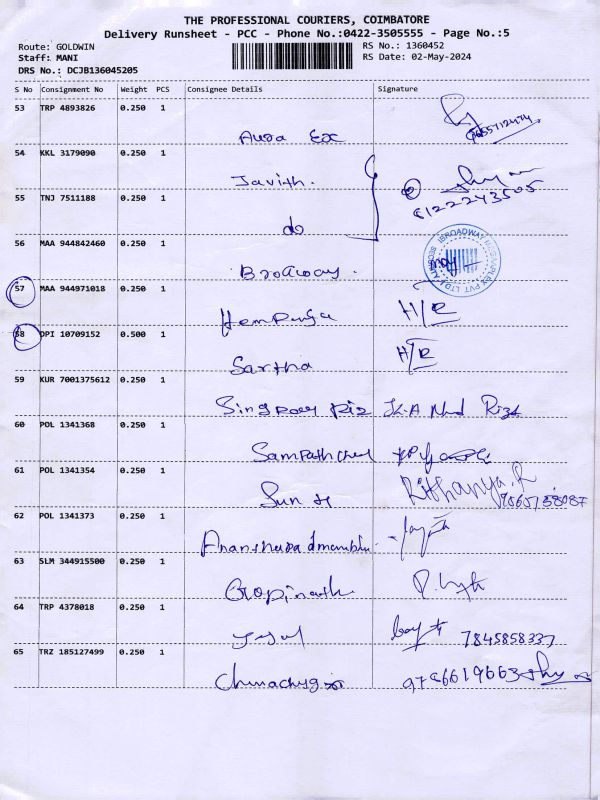 THE PROFESSIONAL COURIERS, COIMBATORE
Delivery Runsheet - PCC - Phone No.:0422-3505555 - Page No.:5
Route: GOLDWIN RS No.: 1360452
Staff: MANI RS Date: 02-May-2024
DRS No.: DCJB136045205
S No Consignment No Weight PCS Consignee Details Signature
53 TRP 4893826 0.250 1
Aura Ex
54 KKL 3179090 0.250 1
Javith.
55 TNJ 7511188 0.250 1
8122243505
do
56 MAA 944842460 0.250 1
Broadway.
57 MAA 944971018 0.250 1
H/R
58 DPI 10709152 0.500 1
Sartha H/R
59 KUR 7001375612 0.250 1
60 POL 1341368 0.250 1
Sampath
61 POL 1341354 0.250 1
Sun Rithanya.R
62 POL 1341373 0.250 1
63 SLM 344915500 0.250 1
Gopinath
64 TRP 4378018 0.250 1
7845858337
65 TRZ 185127499 0.250 1
9786619663